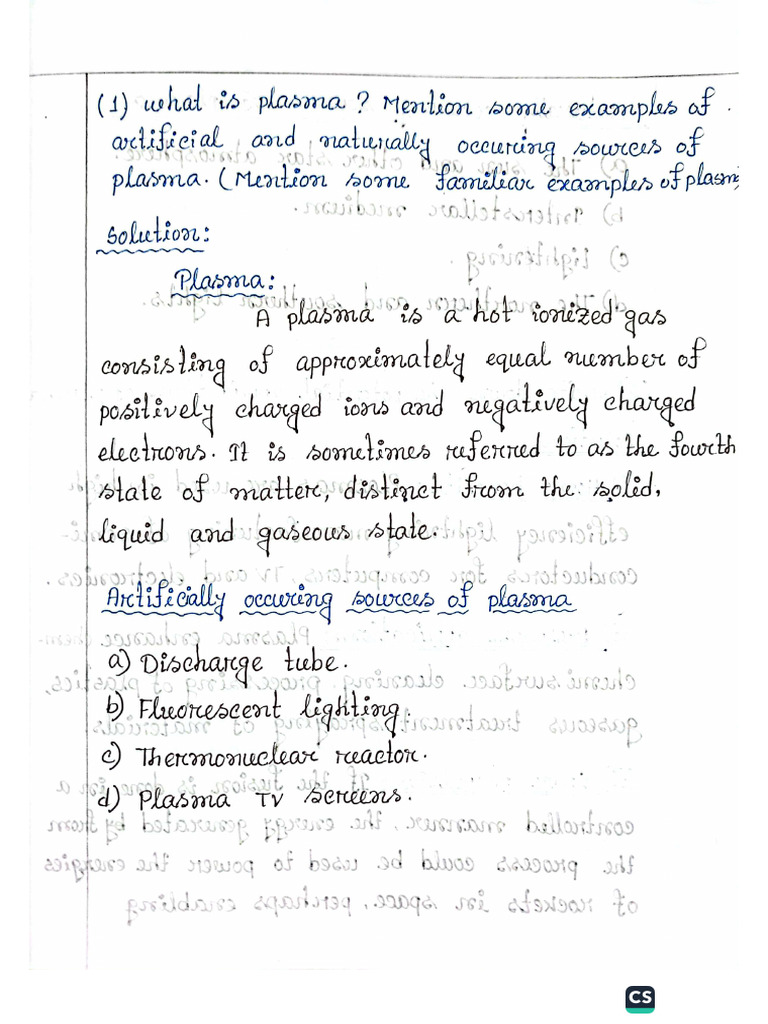 (1) What is plasma? Mention some examples of
artificial and naturally occuring sources of
plasma. (Mention some familiar examples of plasm
Solution:
Plasma:
A plasma is a hot ionized gas
consisting of approximately equal number of
positively charged ions and negatively charged
electrons. It is sometimes referred to as the fourth
state of matter, distinct from the solid,
liquid and gaseous state.
Artificially occuring sources of plasma
a) Discharge tube.
b) Fluorescent lighting.
c) Thermonuclear reactor.
d) Plasma TV screens.
CS